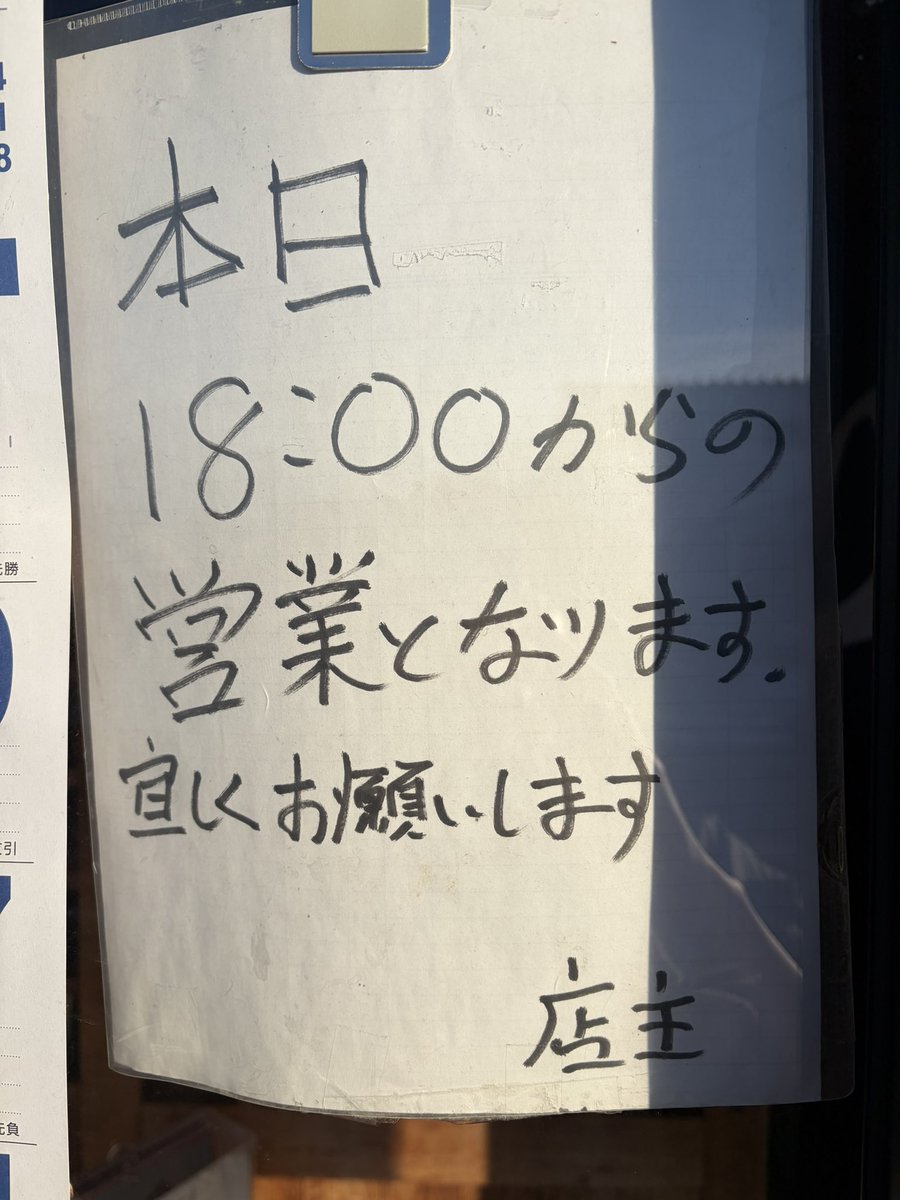 本日
18:00からの
営業となります.
宜しくお願いします
店主
4
8
先勝
友引
先負